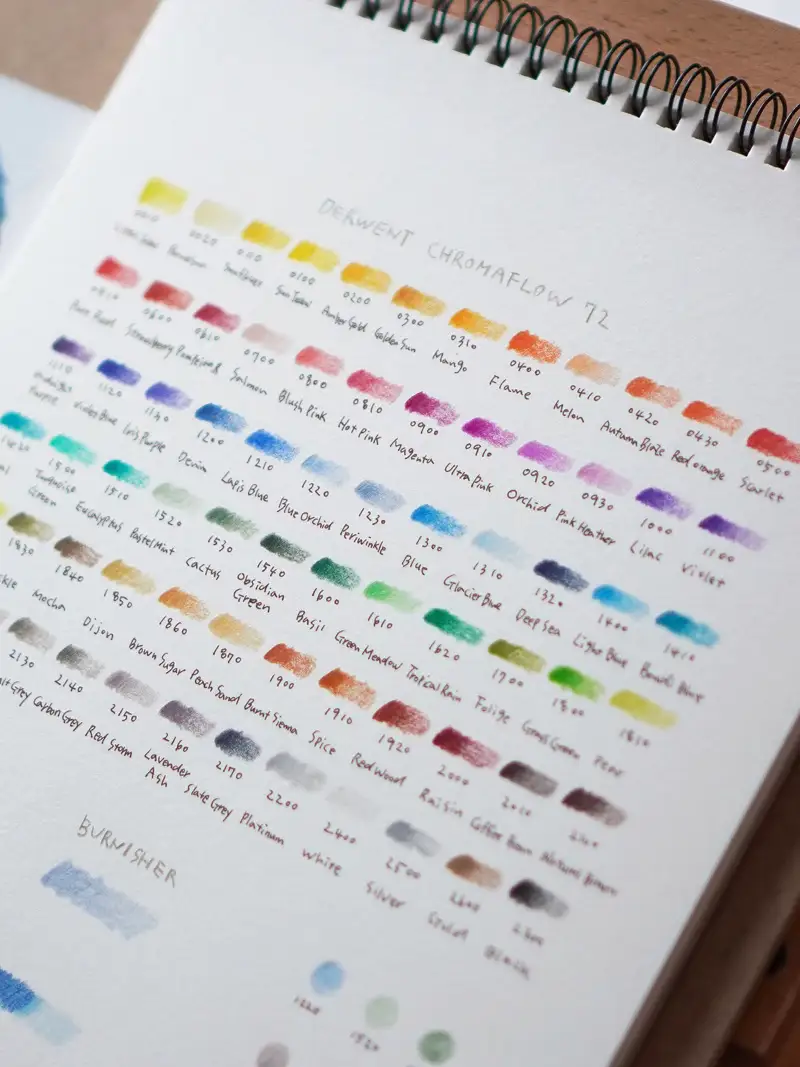 DERWENT CHROMAFLOW 72
0010 0020 0100 0200 0300 0310 0400 0410 0420 0430 0500
Sun Tea Amber Gold Golden Sun Mango Flame Melon Autumn Blaze Red orange Scarlet
0600 0610 0700 0800 0810 0900 0910 0920 0930 1000 1100
Strawberry Salmon Blush Pink Hot Pink Magenta Ultra Pink Orchid Pink Heather Lilac Violet
1110 1120 1130 1200 1210 1220 1230 1300 1310 1320 1400 1410
Purple Violet Blue Iris Purple Denim Lapis Blue Blue Orchid Periwinkle Blue Glacier Blue Deep Sea Light Blue Blue
1420 1500 1510 1520 1530 1540 1600 1610 1620 1700 1800 1810
Turquoise Green Eucalyptus Pastel Mint Cactus Obsidian Green Basil Green Meadow Tropical Rain Folige Grass Green Pear
1830 1840 1850 1860 1870 1900 1910 1920 2000 2010
Mocha Dijon Brown Sugar Peach Sand Burnt Sienna Spice Red Wood Raisin Coffee Bean Natural Brown
2130 2140 2150 2160 2170 2200 2400 2500 2600
Grey Carbon Grey Red Storm Lavender Ash Slate Grey Platinum White Silver Gold Black
BURNISHER
1220
1520